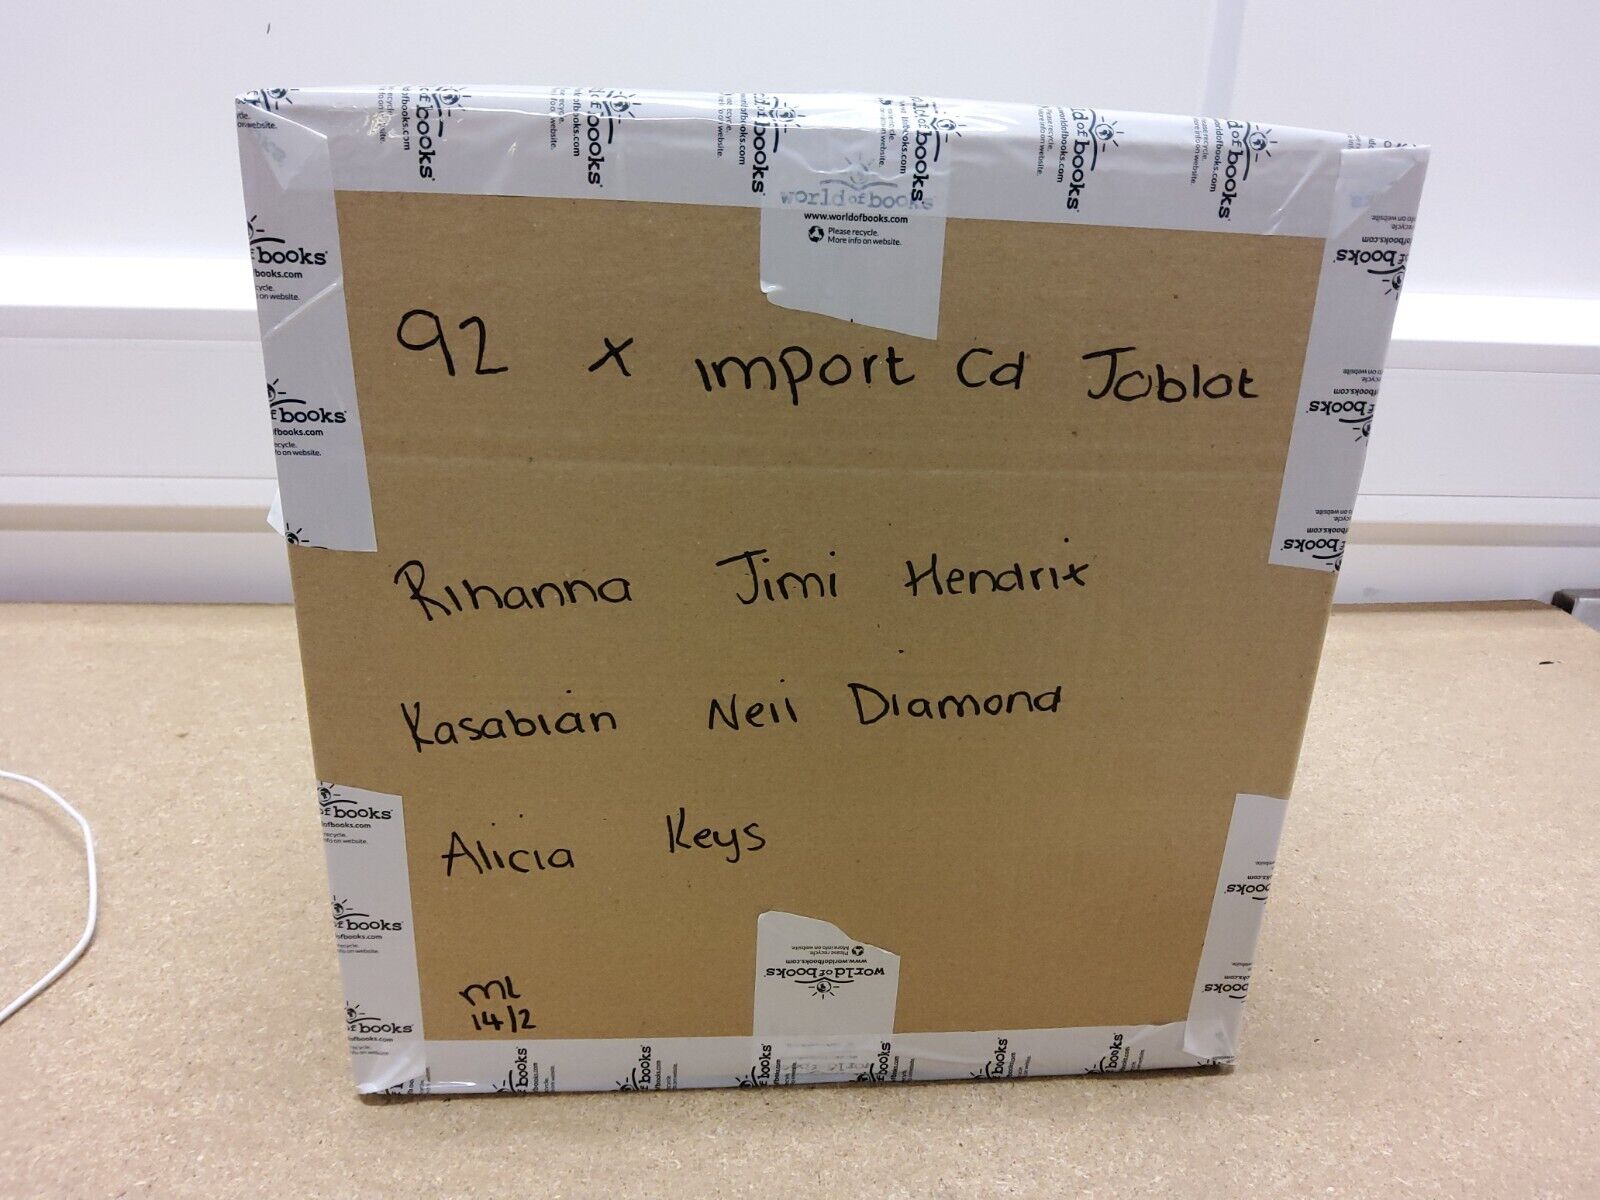 world of books
www.worldofbooks.com
Please recycle.
More info on website.
92 x import Cd Joblot
Rihanna Jimi Hendrix
Kasabian Neil Diamond
Alicia Keys
ML
14/2
world of books
www.worldofbooks.com
Please recycle.
More info on website.